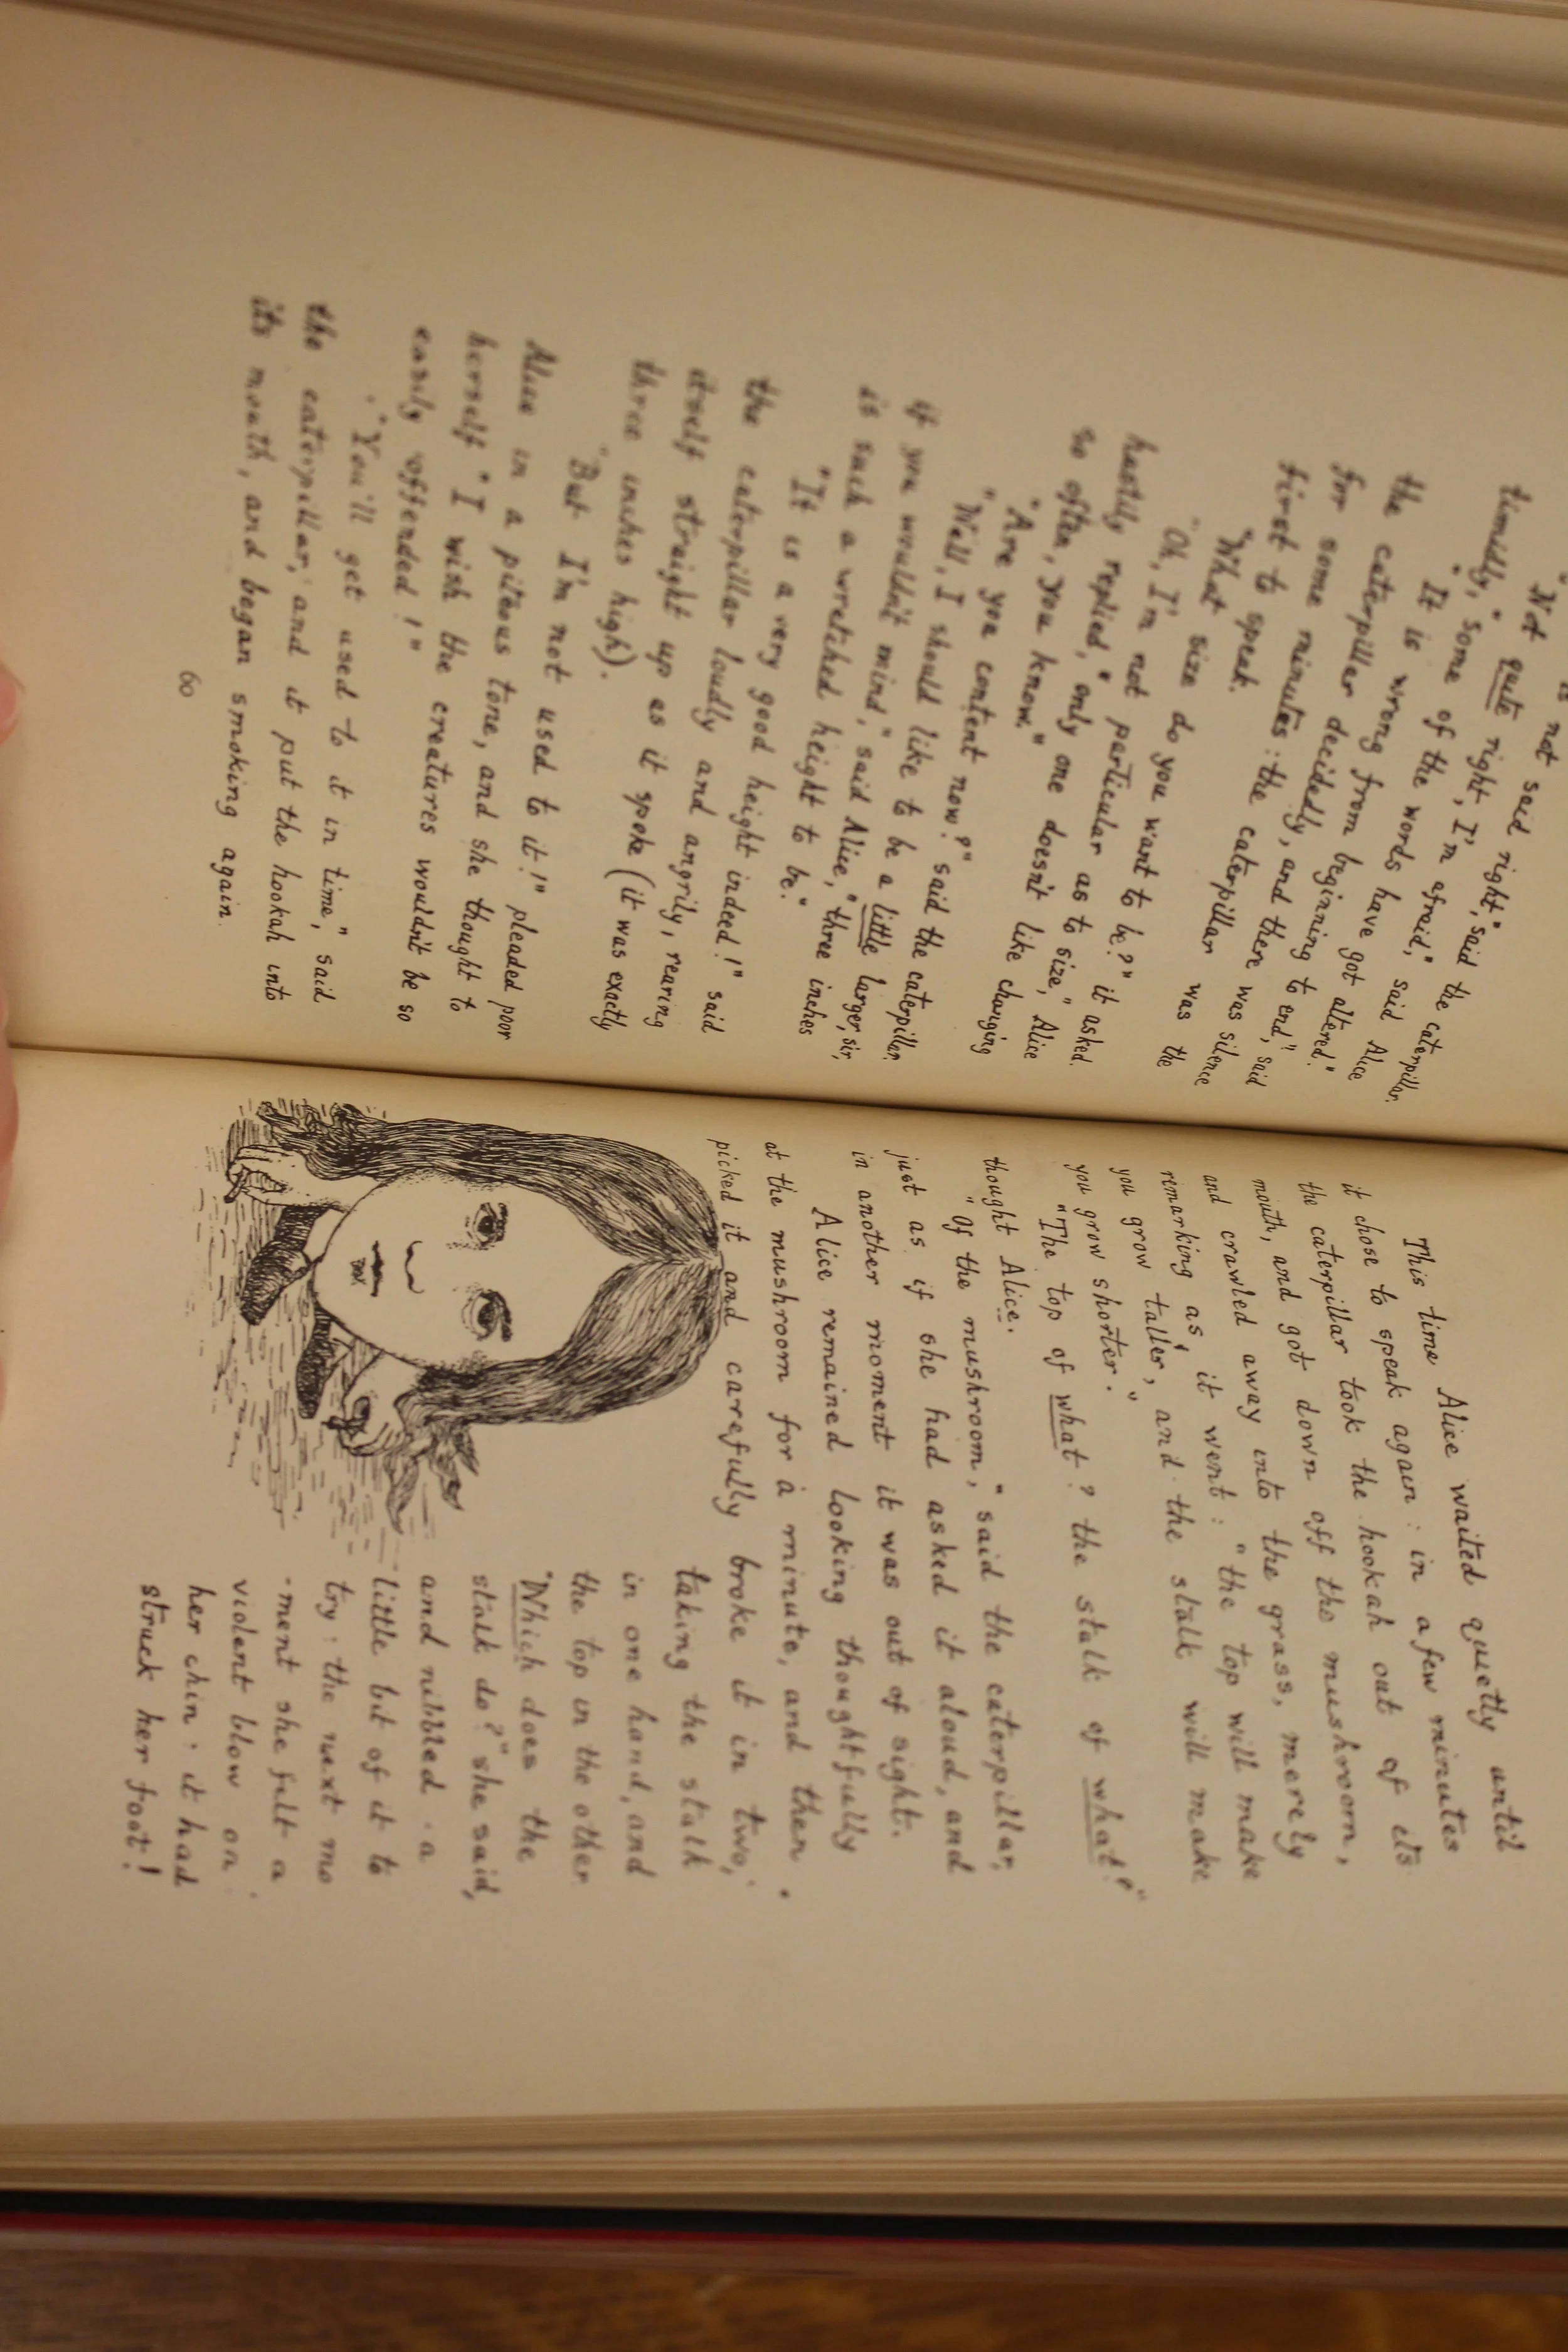 is not said right," said the caterpillar.
"Not quite right, I'm afraid," said Alice
timidly, "some of the words have got altered."
"It is wrong from beginning to end," said
the caterpillar decidedly, and there was silence
for some minutes: the caterpillar was the
first to speak.
"What size do you want to be?" it asked.
"Oh, I'm not particular as to size," Alice
hastily replied, "only one doesn't like changing
so often, you know."
"Are you content now?" said the caterpillar.
"Well, I should like to be a little larger, sir,
if you wouldn't mind," said Alice, "three inches
is such a wretched height to be."
"It is a very good height indeed!" said
the caterpillar loudly and angrily, rearing
itself straight up as it spoke (it was exactly
three inches high).
"But I'm not used to it!" pleaded poor
Alice in a piteous tone, and she thought to
herself "I wish the creatures wouldn't be so
easily offended!"
"You'll get used to it in time," said
the caterpillar, and it put the hookah into
its mouth, and began smoking again.
60
This time Alice waited quietly until
it chose to speak again: in a few minutes
the caterpillar took the hookah out of its
mouth, and got down off the mushroom,
and crawled away into the grass, merely
remarking as it went: "the top will make
you grow taller, and the stalk will make
you grow shorter."
"The top of what? the stalk of what?"
thought Alice.
"Of the mushroom," said the caterpillar,
just as if she had asked it aloud, and
in another moment it was out of sight.
Alice remained looking thoughtfully
at the mushroom for a minute, and then
picked it and carefully broke it in two,
taking the stalk
in one hand, and
the top in the other.
"Which does the
stalk do?" she said,
and nibbled a
little bit of it to
try: the next mo
-ment she felt a
violent blow on
her chin: it had
struck her foot!